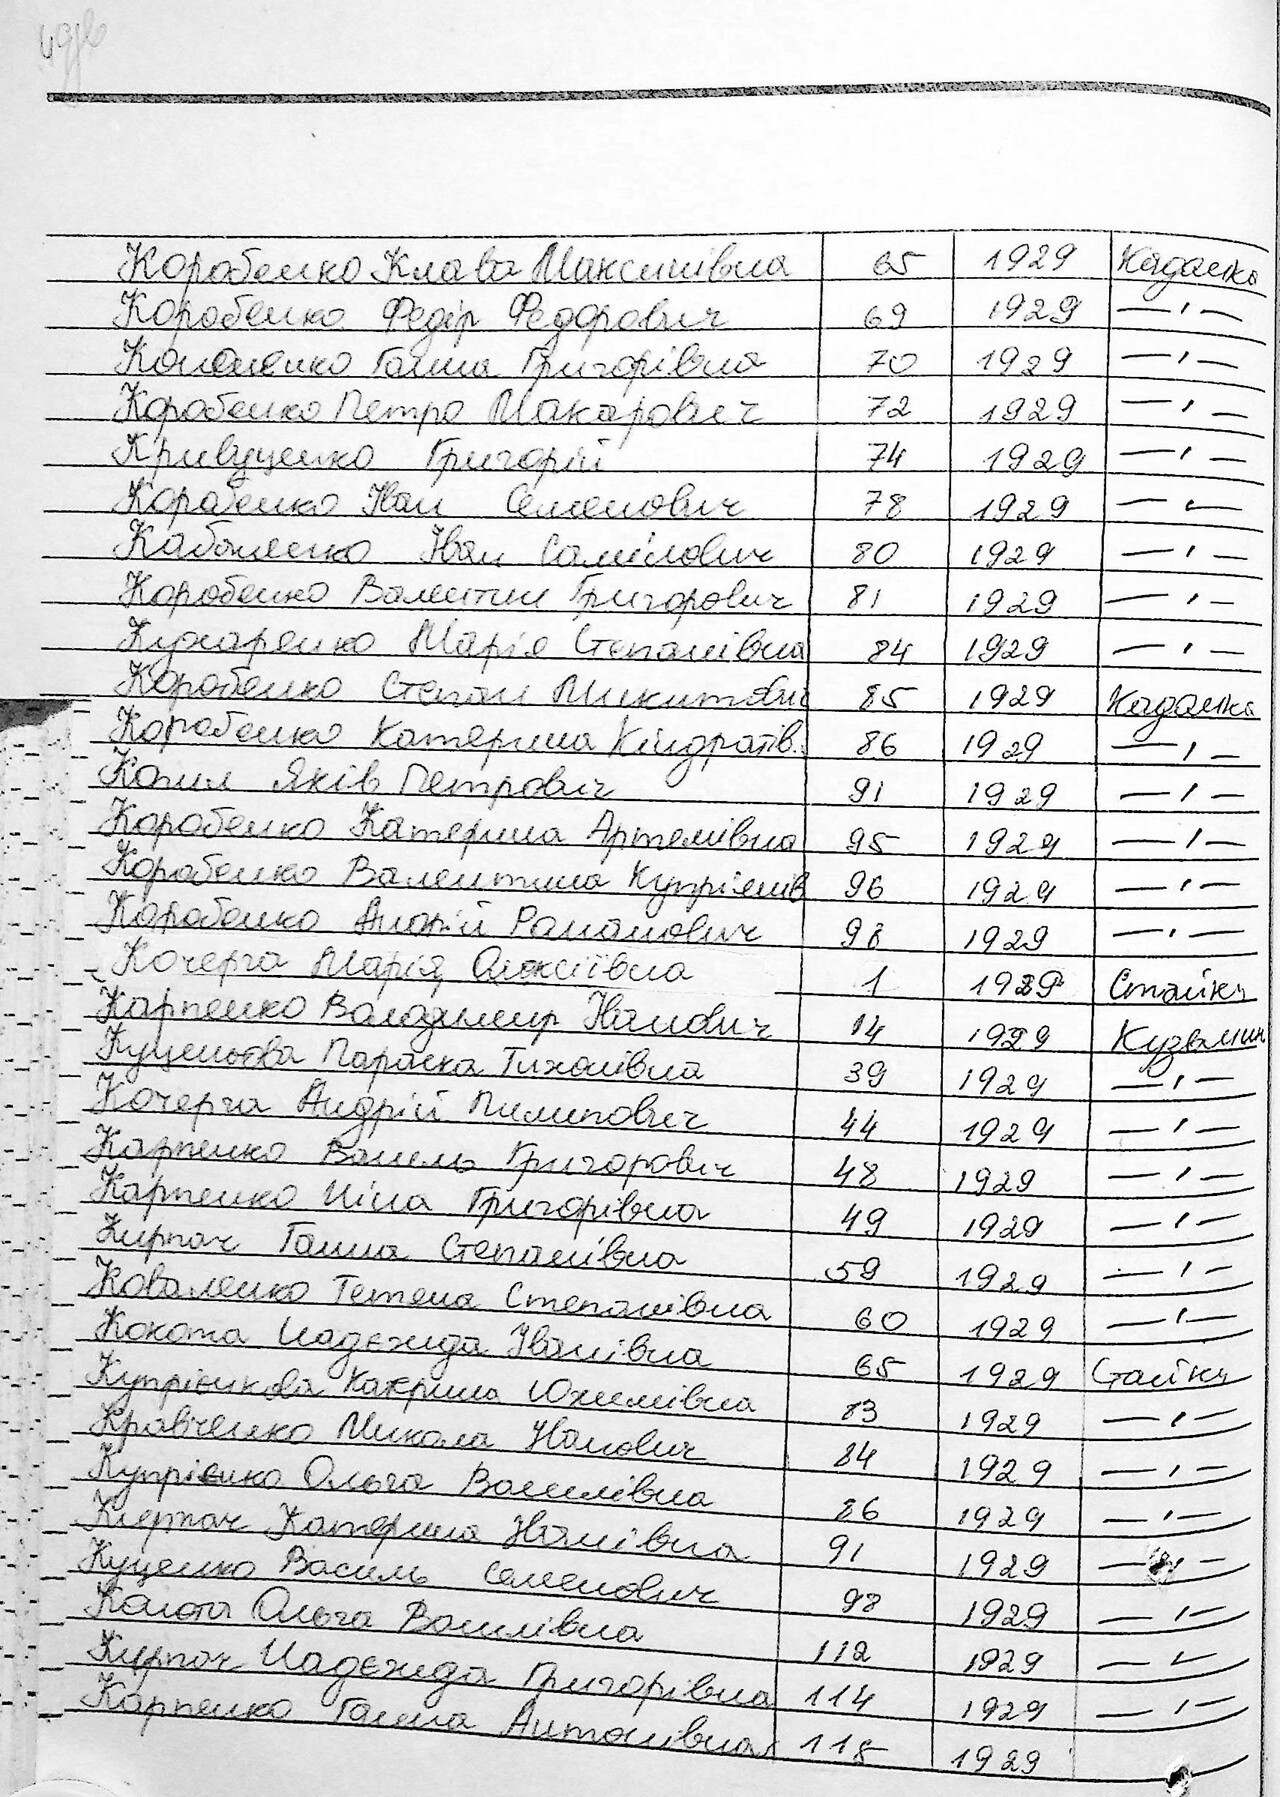 Коробенко Клава Максимівна 65 1929 Кадомка
Коробенко Федір Федорович 69 1929 —"—
Кононенко Ганна Григорівна 70 1929 —"—
Коробенко Петро Макарович 72 1929 —"—
Кривуценко Григорій 74 1929 —"—
Коробенко Іван Семенович 78 1929 —"—
Іван Самілович 80 1929 —"—
Коробенко Валентин Григорович 81 1929 —"—
Кухаренко Марія Степанівна 84 1929 —"—
Коробенко Степан Микитович 85 1929 Кадомка
Коробенко Катерина Кіндратів. 86 1929 —"—
Копил Яків Петрович 91 1929 —"—
Коробенко Катерина Артемівна 95 1929 —"—
Коробенко Валентина Купріянів 96 1929 —"—
Коробенко Андрій Романович 98 1929 —"—
Кочерга Марія Олексіївна 1 1929 Стайки
Карпенко Володимир Іванович 14 1929 Кузьмин
Куценьова Параска Тихонівна 39 1929 —"—
Кочерга Андрій Пилипович 44 1929 —"—
Карпенко Василь Григорович 48 1929 —"—
Карпенко Ніна Григорівна 49 1929 —"—
Кирпач Ганна Степанівна 59 1929 —"—
Коваленко Тетена Степанівна 60 1929 —"—
Кокота Надежда Іванівна 65 1929 Стайки
Купрієнкова Катрина Юхимівна 83 1929 —"—
Кравченко Микола Іванович 84 1929 —"—
Купрієнко Ольга Василівна 86 1929 —"—
Кирпач Катерина Іванівна 91 1929 —"—
Куценко Василь Семенович 98 1929 —"—
Ольга Василівна 112 1929 —"—
Кирпач Надежда Григорівна 114 1929 —"—
Карпенко Ганна Антонівна 118 1929